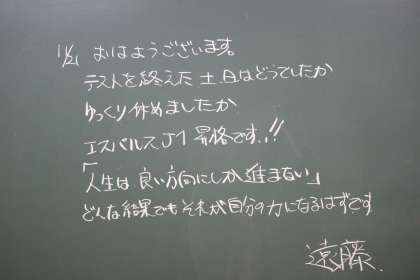 11/21 おはようございます。
テストを終えた土.日はどうでしたか
ゆっくり休めましたか
エスパルスJ1昇格です!!
「人生は良い方向にしか進まない」
どんな結果でもそれが自分の力になるはずです
遠藤